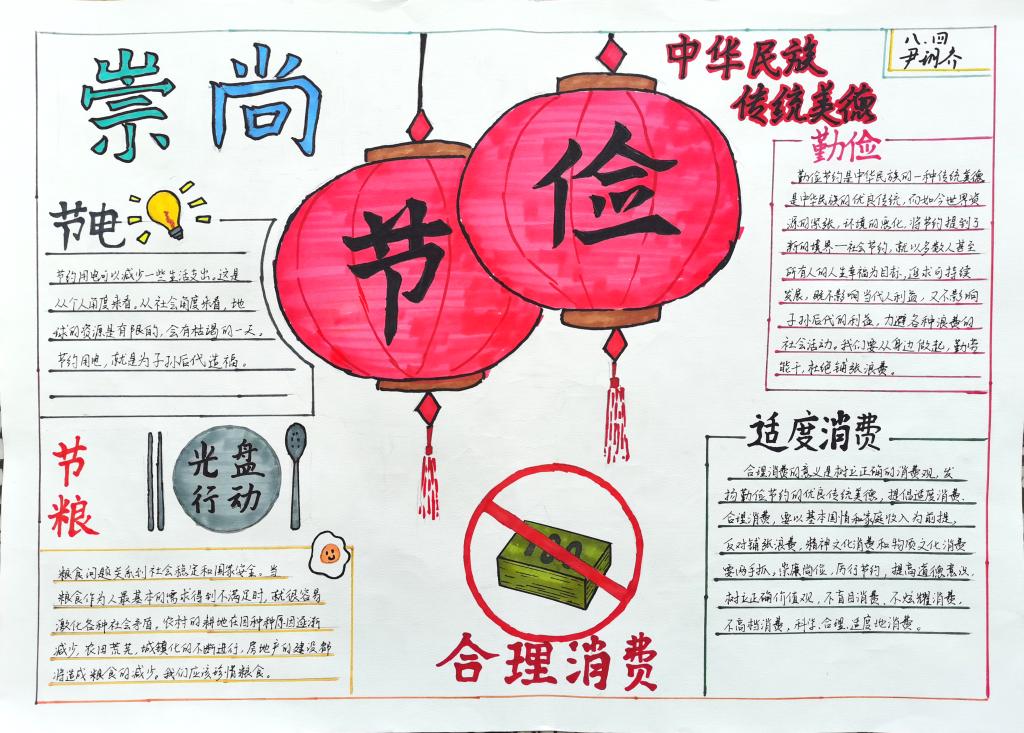 崇尚
节俭
中华民族
传统美德
八.四
节电
节约用电可以减少一些生活支出。这是
从个人角度来看。从社会角度来看，地
球的资源是有限的，会有枯竭的一天。
节约用电，就是为子孙后代造福。
节粮
光盘
行动
粮食问题关系到社会稳定和国家安全。当
粮食作为人最基本的需求得到不满足时，就很容易
激化各种社会矛盾，农村的耕地在因种种原因逐渐
减少，农田荒芜，城镇化的不断进行，房地产的建设都
将造成粮食的减少。我们应该珍惜粮食。
100
合理消费
勤俭
勤俭节约是中华民族的一种传统美德
是中华民族的优良传统，而如今世界资
源的紧张，环境的恶化，将节约提到了
新的境界—社会节约，就以多数人甚至
所有人的人生幸福为目标，追求可持续
发展，既不影响当代人利益，又不影响
子孙后代的利益，力避各种浪费的
社会活动。我们要从身边做起，勤劳
能干，杜绝铺张浪费。
适度消费
合理消费的意义是树立正确的消费观，发
扬勤俭节约的优良传统美德，提倡适度消费、
合理消费，要以基本国情和家庭收入为前提，
反对铺张浪费，精神文化消费和物质文化消费
要两手抓，崇廉尚俭，厉行节约，提高道德意识，
树立正确价值观，不盲目消费、不炫耀消费，
不高档消费，科学、合理、适度地消费。